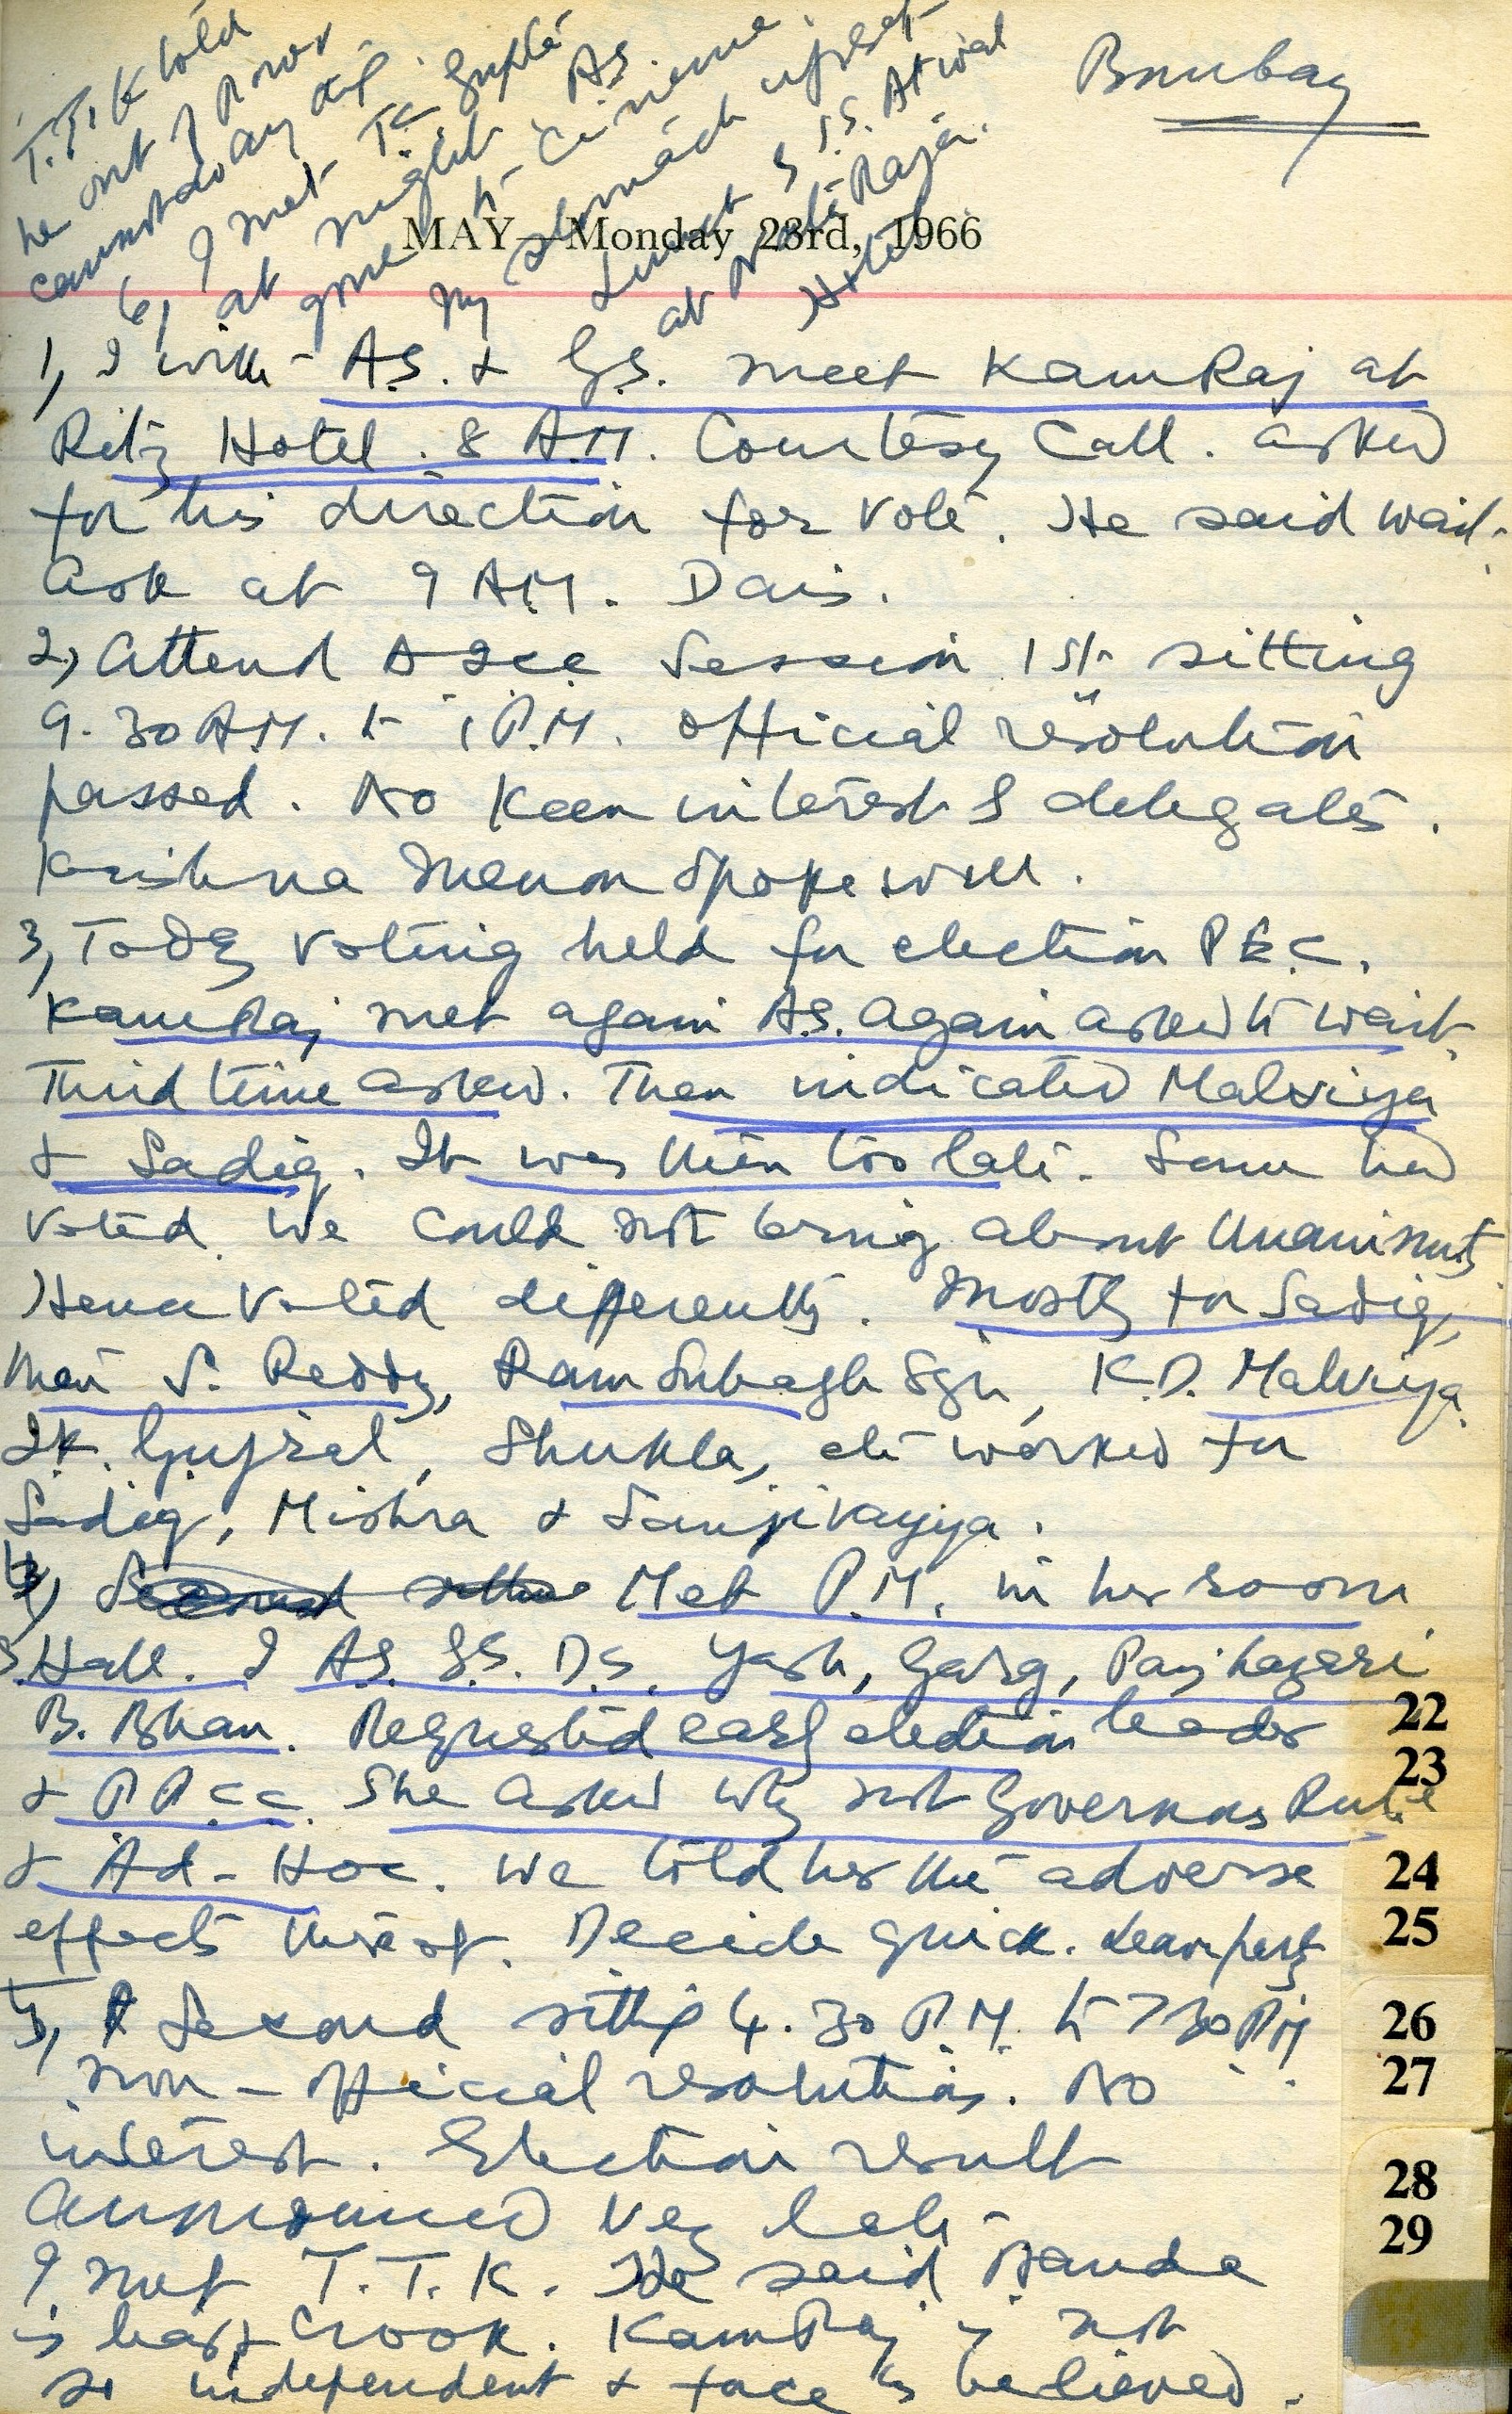 Bombay
MAY—Monday 23rd, 1966
T.T.K told
he out of power
cannot do any
6, I met T.C. Gupta
at night AS.
gone to cinema.
my stomach upset
Lunch S.S. Atwal
at Nataraja
Hotel
1, I with A.S. & G.S. meet KamRaj at
Ritz Hotel. 8 A.M. Courtesy Call. asked
for his direction for vote. He said wait.
Ask at 9 AM. Dais.
2, Attend AICC Session 1st sitting
9.30 A.M. to 1 P.M. official resolution
passed. No Keen interest of delegates.
Krishna Menon spoke well.
3, Today voting held for election P.E.C.
KamRaj met again A.S. again asked to wait.
Third time asked. Then indicated Malviya
& Sadiq. It was then too late. Some had
voted. We could not bring about Unanimity
Hence voted differently. Mostly for Sadiq,
then S. Reddy, Ram Subagh Sgh, K.D. Malviya.
I.K. Gujral, Shukla, etc worked for
Sadiq, Mishra & Sanjivayya.
4, Met P.M. in her room
Hall. I A.S. G.S. D.S. Yash, Garg, Panj hazari
B. Bhan. Requested early election leader
& P.P.C.C. She asked why not Governors Rule
& Ad-Hoc. We told her the adverse
effects thereof. Decide quick.
5, Second sitting 4.30 P.M. to 7 30 PM
non-official resolutions. No
interest. Election result
announced very late
I met T.T.K. He said Nanda
is crook. KamRaj is not
so independent & face is believed.
22
23
24
25
26
27
28
29